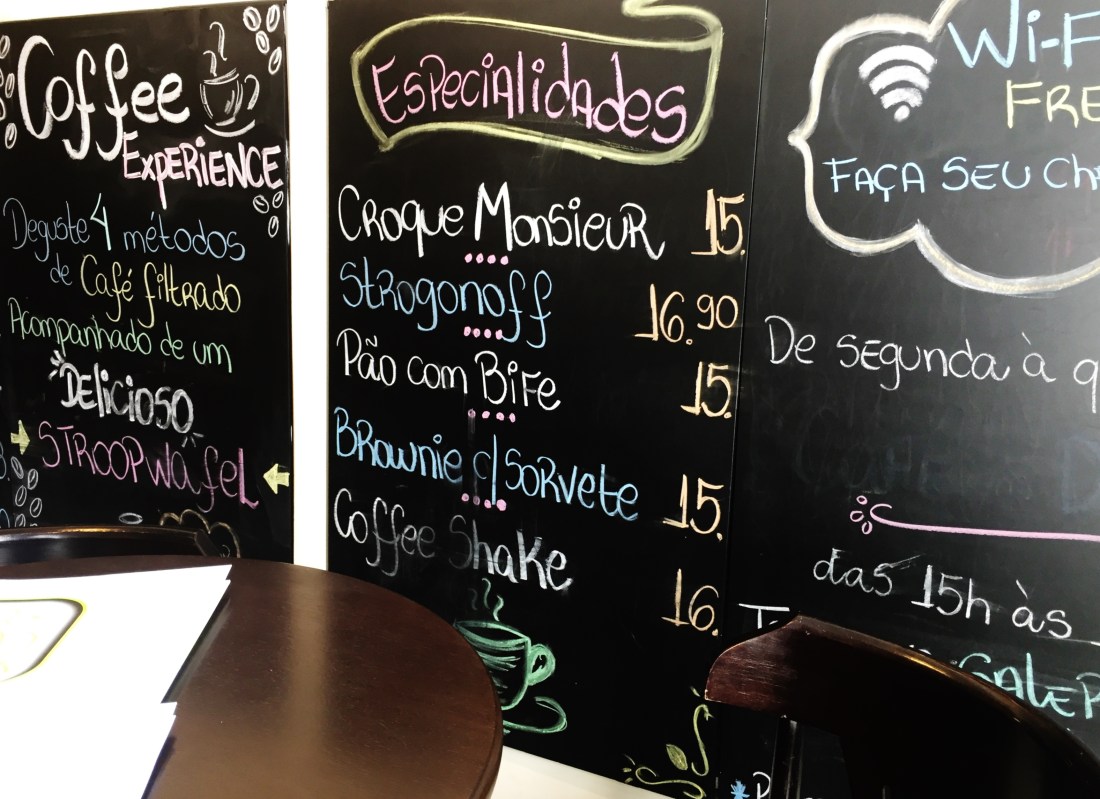 Coffee
Experience
Deguste 4 métodos
de Café filtrado
Acompanhado de um
Delicioso
Stroopwafel
Especialidades
Croque Monsieur 15.
Strogonoff 16.90
Pão com Bife 15.
Brownie c/ Sorvete 15.
Coffee Shake 16.
Wi-F
FRE
FAÇA SEU Ch
De segunda à q
das 15h às